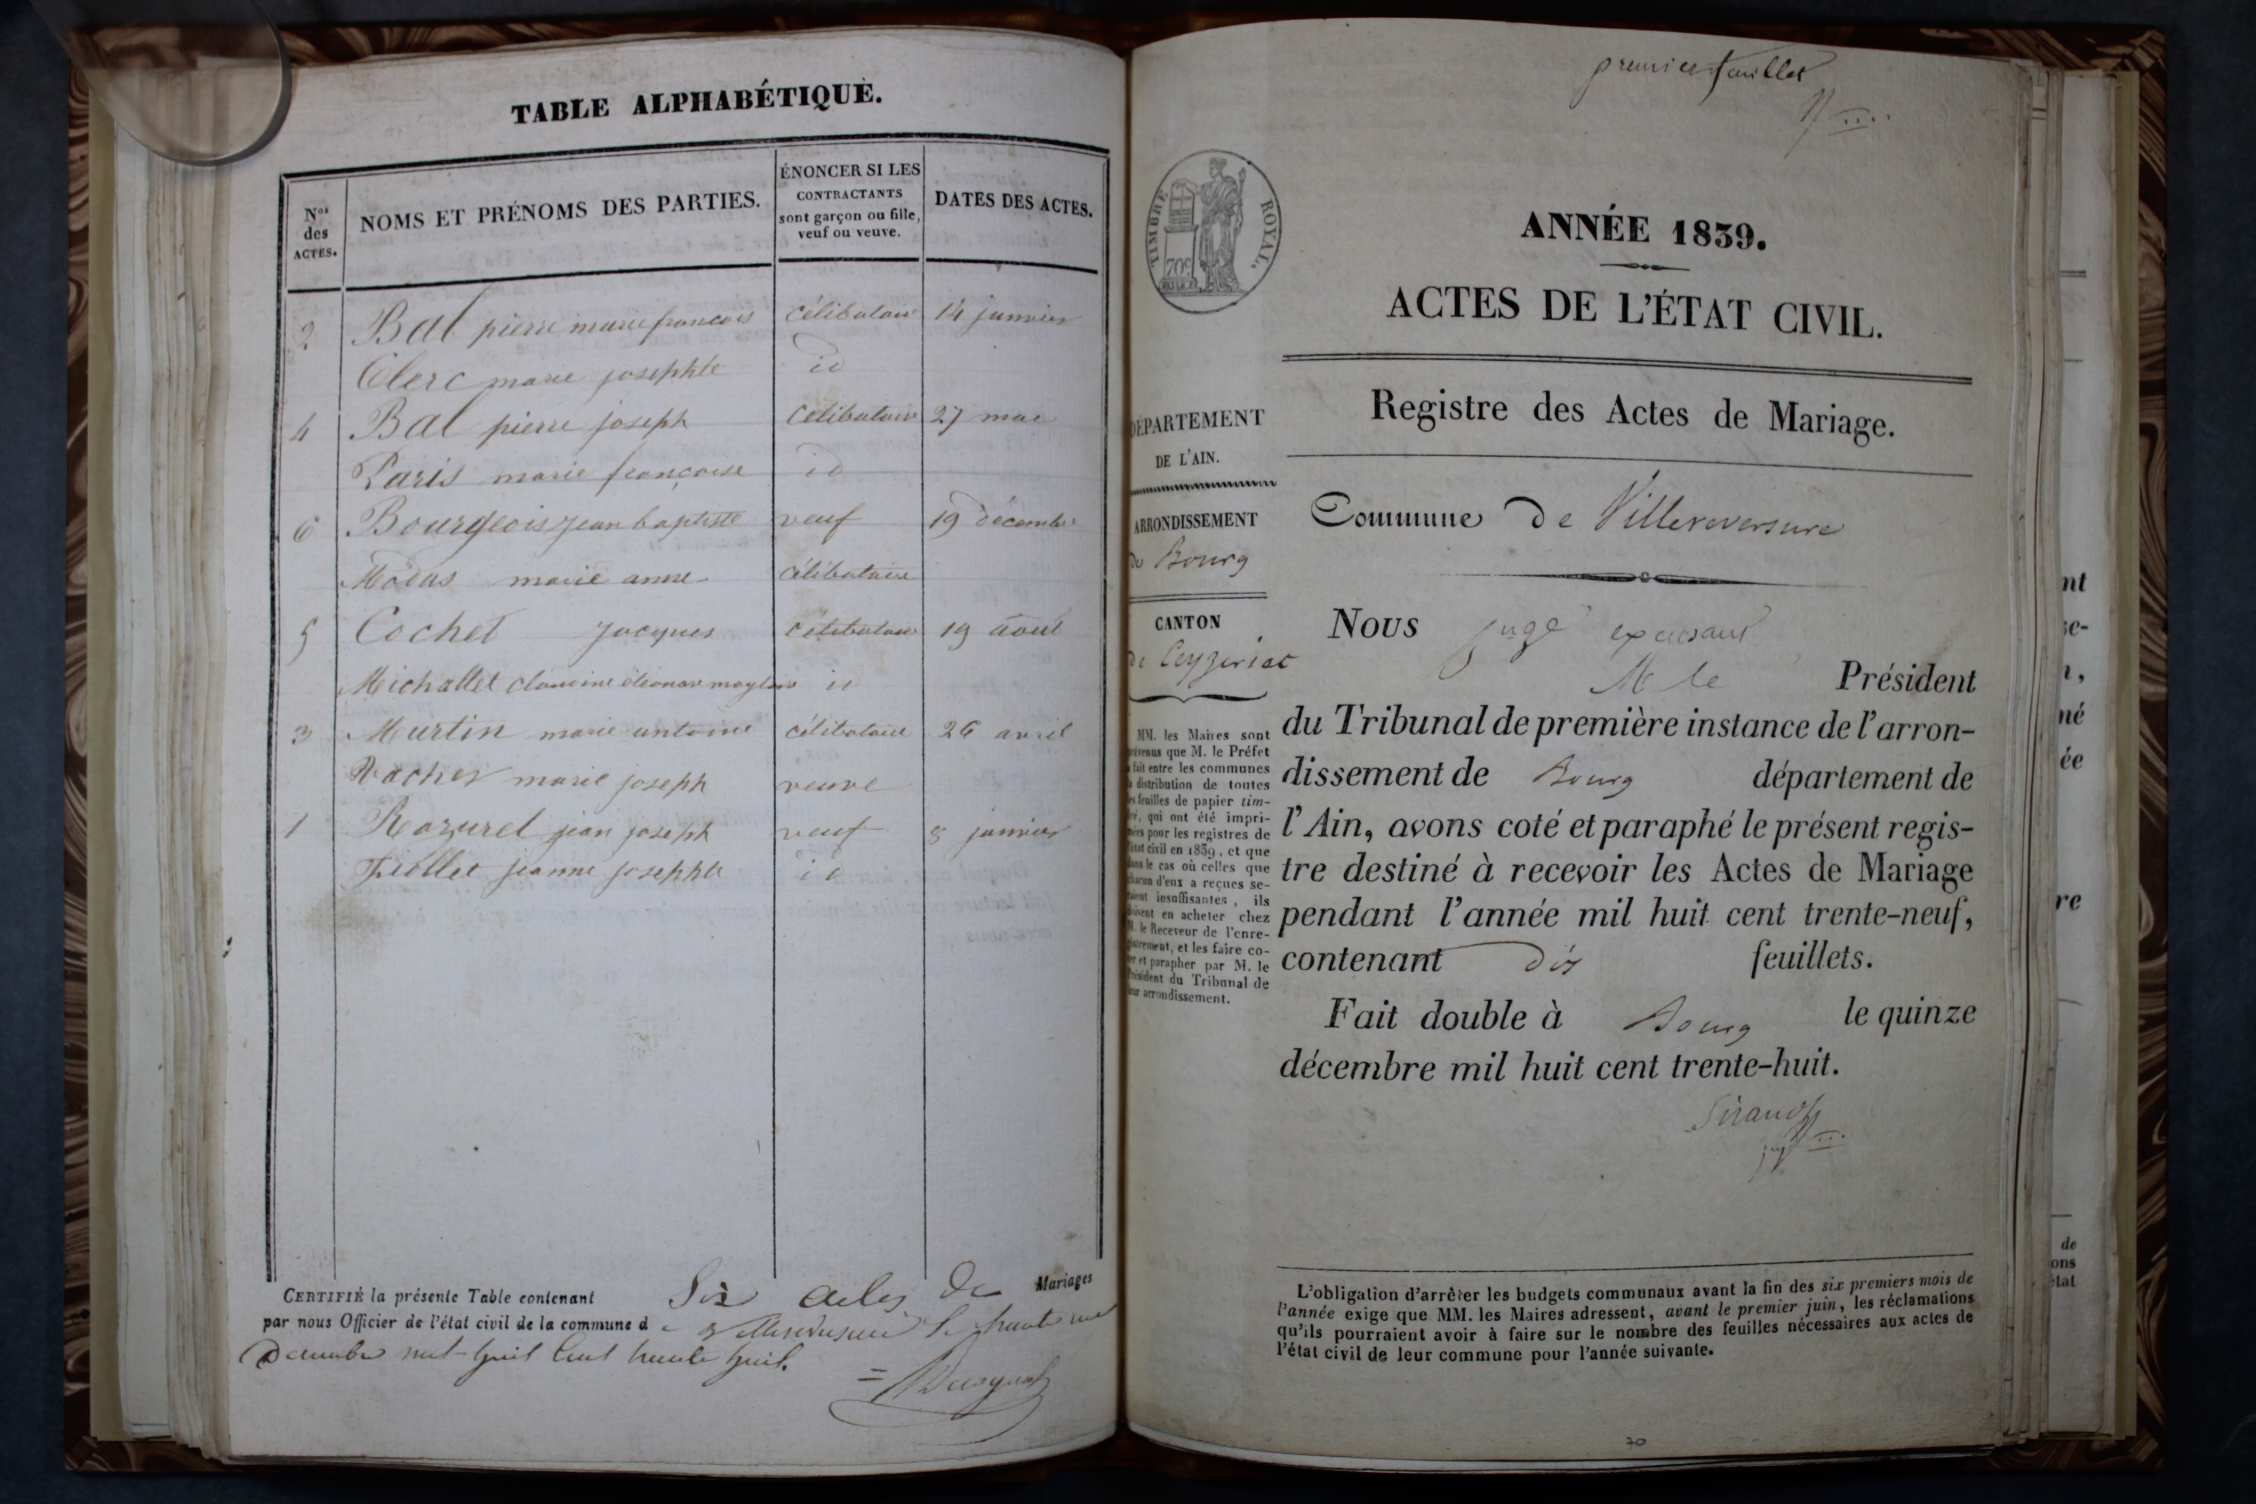 TABLE ALPHABÉTIQUE.
Nos des ACTES.
NOMS ET PRÉNOMS DES PARTIES.
ÉNONCER SI LES
CONTRACTANTS
sont garçon ou fille,
veuf ou veuve.
DATES DES ACTES.
2 Bal pierre marie francois célibataire 14 janvier
Clerc marie josephte id
4 Bal pierre joseph célibataire 27 mai
Paris marie françoise id
6 Bourgeois jean baptiste veuf 19 décembre
marie anne célibataire
5 Cochet Jacques célibataire 19 août
Michallet id
3 Murtin marie antoine célibataire 26 avril
marie joseph veuve
1 jean joseph veuf 8 janvier
jeanne josephte id
CERTIFIÉ la présente Table contenant Six actes de Mariages
par nous Officier de l'état civil de la commune de Villereversure le trente un
Décembre mil huit Cent trente huit.
premier feuillet
TIMBRE ROYAL
70c
ANNÉE 1839.
ACTES DE L'ÉTAT CIVIL.
Registre des Actes de Mariage.
Commune de Villereversure
DÉPARTEMENT
DE L'AIN.
ARRONDISSEMENT
de Bourg
CANTON
de Ceyzeriat
MM. les Maires sont
prévenus que M. le Préfet
a fait entre les communes
la distribution de toutes
les feuilles de papier tim-
bré, qui ont été impri-
mées pour les registres de
l'état civil en 1839, et que
dans le cas où celles que
chacun d'eux a reçues se-
raient insuffisantes, ils
doivent en acheter chez
M. le Receveur de l'enre-
gistrement, et les faire co-
ter et parapher par M. le
Président du Tribunal de
leur arrondissement.
Nous juge
M le Président
du Tribunal de première instance de l'arron-
dissement de Bourg département de
l'Ain, avons coté et paraphé le présent regis-
tre destiné à recevoir les Actes de Mariage
pendant l'année mil huit cent trente-neuf,
contenant dix feuillets.
Fait double à Bourg le quinze
décembre mil huit cent trente-huit.
L'obligation d'arrêter les budgets communaux avant la fin des six premiers mois de
l'année exige que MM. les Maires adressent, avant le premier juin, les réclamations
qu'ils pourraient avoir à faire sur le nombre des feuilles nécessaires aux actes de
l'état civil de leur commune pour l'année suivante.